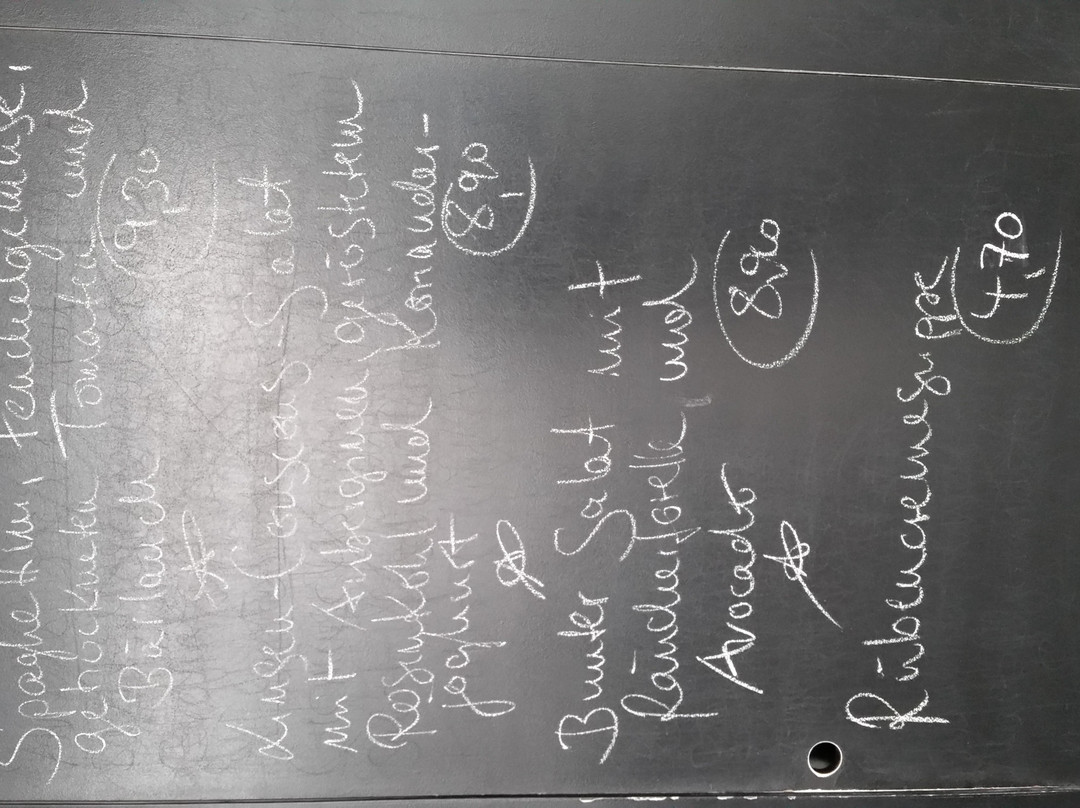 Spaghettini, Fenchelgemüse,
getrockneten Tomaten und
Bärlauch 9,30
Linsen-Couscous-Salat
mit Auberginen, geröstetem
Rosenkohl und Koriander-
joghurt 8,90
Bunter Salat mit
Räucherforelle, und
Avocado 8,90
Rübencremesuppe
4,70